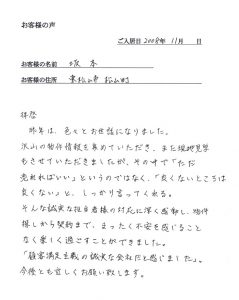 お客様の声
ご入居日 2008年 11月 日
お客様の名前 坂本
お客様の住所 東松山市 松山町
拝啓
昨年は、色々とお世話になりました。
沢山の物件情報を集めていただき、また現地見学
もさせていただきましたが、その中で「ただ
売れればいい」というのではなく、「良くないところは
良くない」と、しっかり言ってくれる。
そんな誠実な担当者様の対応に深く感動し、物件
探しから契約まで、まったく不安を感じること
なく楽しく過ごすことができました。
「顧客満足主義の誠実な会社だと感じました」。
今後とも宜しくお願い致します。